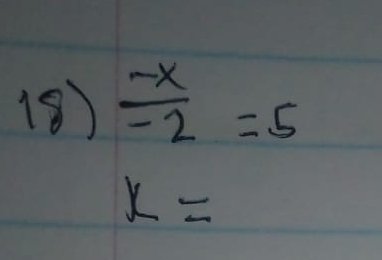 18) -x/-2 = 5
x =